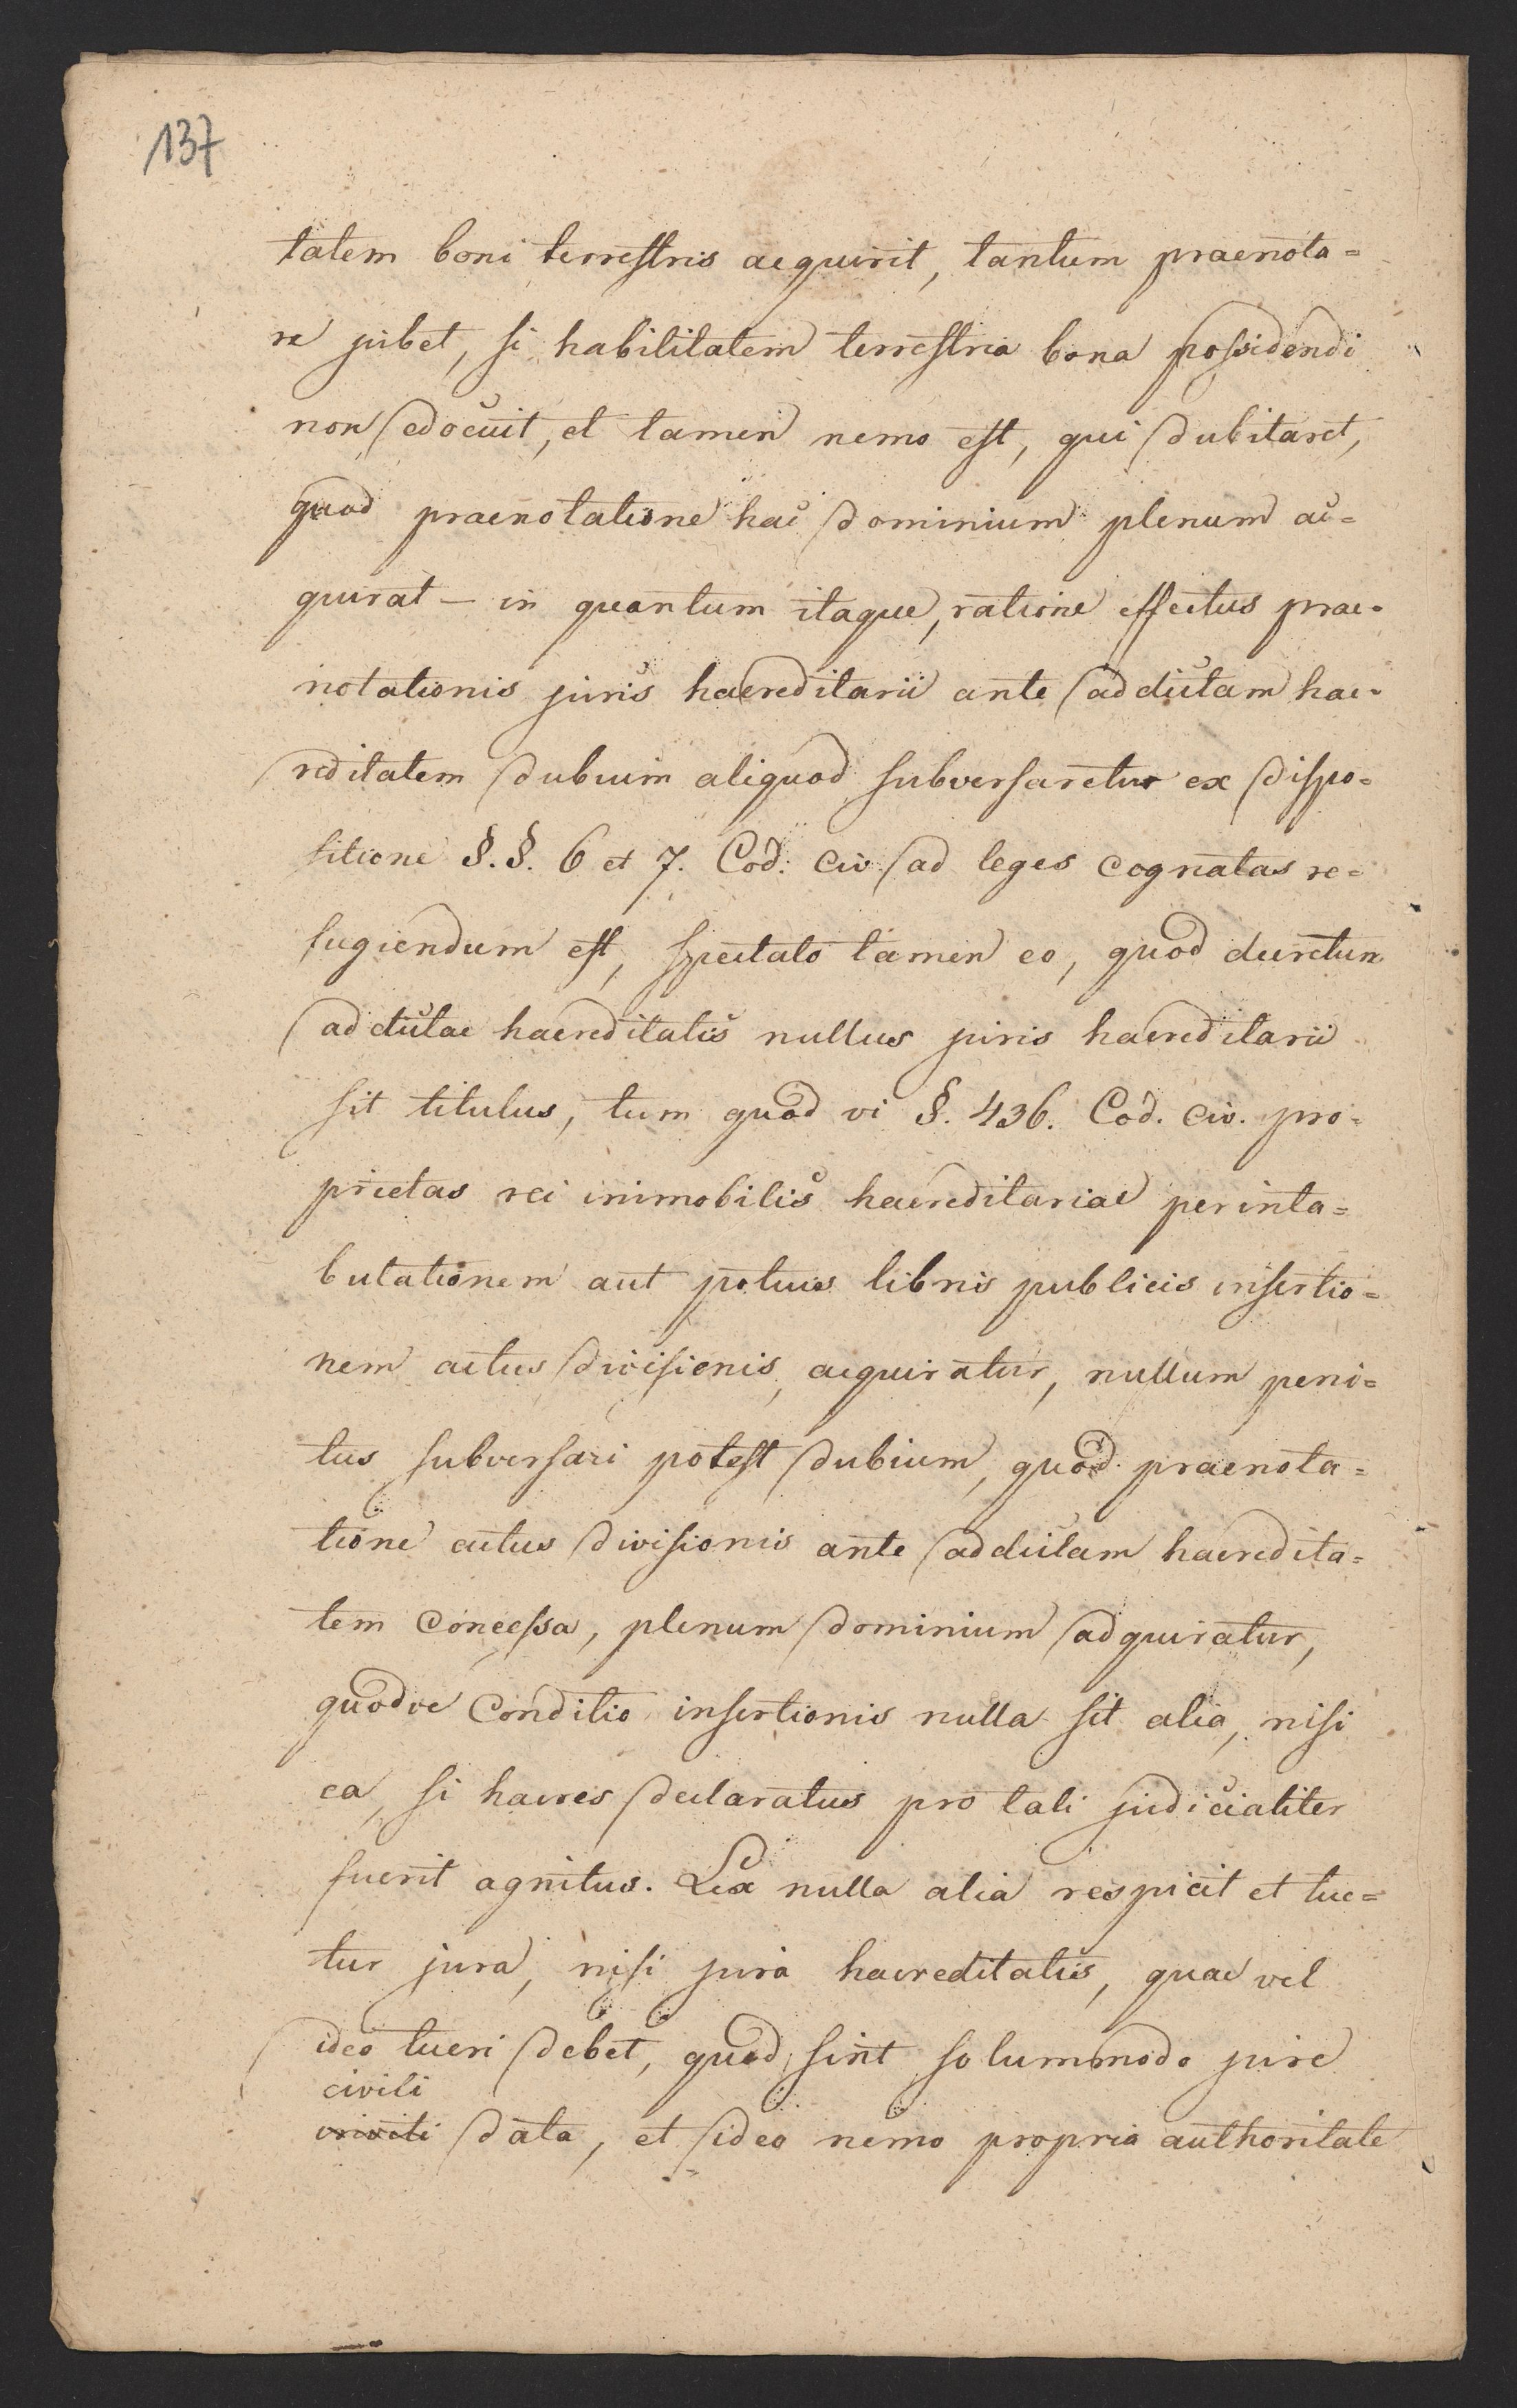 137
tatem boni terrestris acquirit, tantum praenota=
re jubet, si habilitatem terrestria bona possidendi
non edocuit, et tamen nemo est, qui dubitaret,
quod praenotatione hac dominium plenum ac=
quirat – in quantum itaque, ratione effectus prae=
notationis juris haereditarii ante addictam hae=
reditatem dubium aliquod subversaretur ex dispo=
sitione §.§. 6 et 7. Cod. civ. ad leges cognatas re=
fugiendum est, spectato tamen eo, quod decretum
addictae haereditatis nullus juris haereditarii
sit titulus, tum quod vi §. 436. Cod. civ. pro=
prietas rei immobilis haereditariae per inta=
bulationem aut potius libris publicis insertio=
nem actus divisionis, acquiratur, nullum peni=
tus subversari potest dubium, quod praenota=
tione actus divisionis ante addictam haeredita=
tem concessa, plenum dominium adquiratur,
quodve conditio insertionis nulla sit alia, nisi
ea, si haeres declaratus pro tali judicialiter
fuerit agnitus. Lex nulla alia respicit et tue=
tur jura, nisi jura haereditatis, quae vel
ideo tueri debet, quod sint solummodo jure
civili
data, et ideo nemo propria authoritate